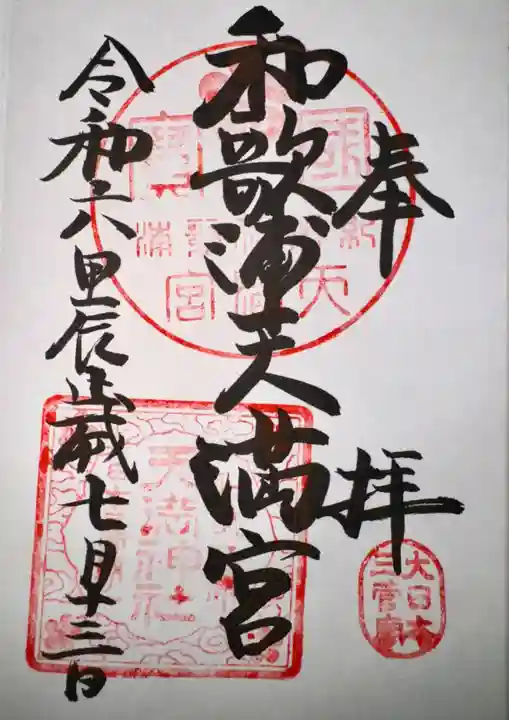 奉拝
和歌浦天満宮
令和六甲辰歳七月十三日
天満神
大日本
三菅廟